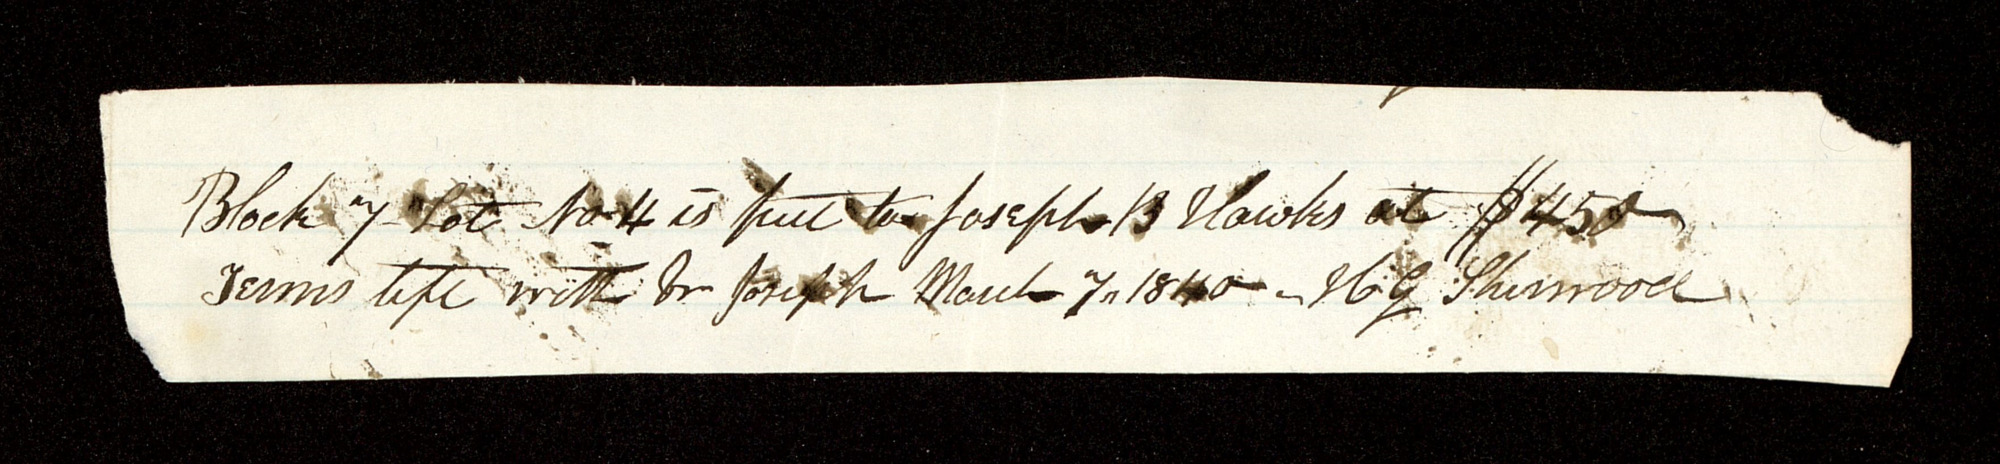 Block 7 Lot No 4 is put to Joseph B Hawks at $450
Terms left with Br Joseph March 7, 1840 - H G Sherwood